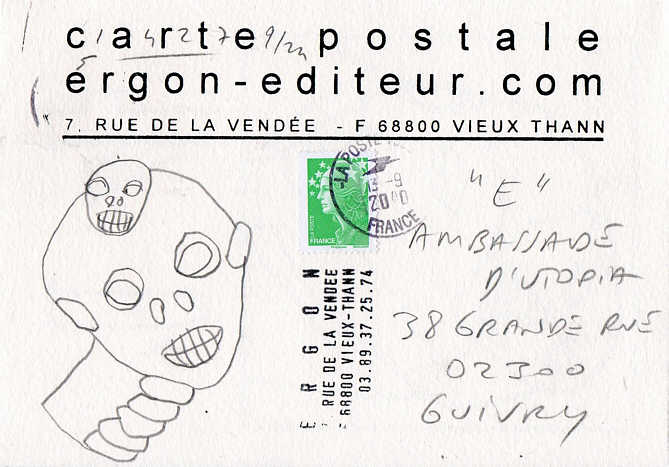 carte postale
ergon-editeur.com
7. RUE DE LA VENDÉE - F 68800 VIEUX THANN
LA POSTE
13-9
20
FRANCE
LA POSTE
FRANCE
"E"
AMBASSADE
D'UTOPIA
38 GRANDE RUE
02300
GUIVRY
ERGON
RUE DE LA VENDEE
68800 VIEUX-THANN
03.89.37.25.74